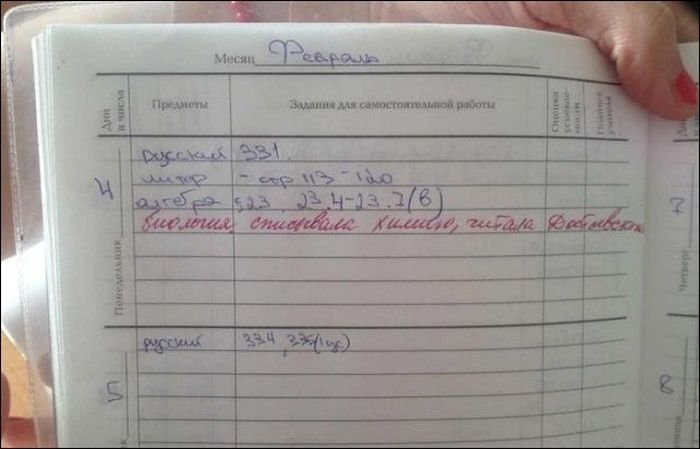 Месяц Февраль
Дни и числа Предметы Задания для самостоятельной работы Оценка успеваемости Подпись учителя
Понедельник 4
русский 331.
литер - стр 113 - 120
алгебра §23. 23.4-23.7(в)
биология, списывала химию, читала Достоевского
5
русский 334,
7
Четверг
8